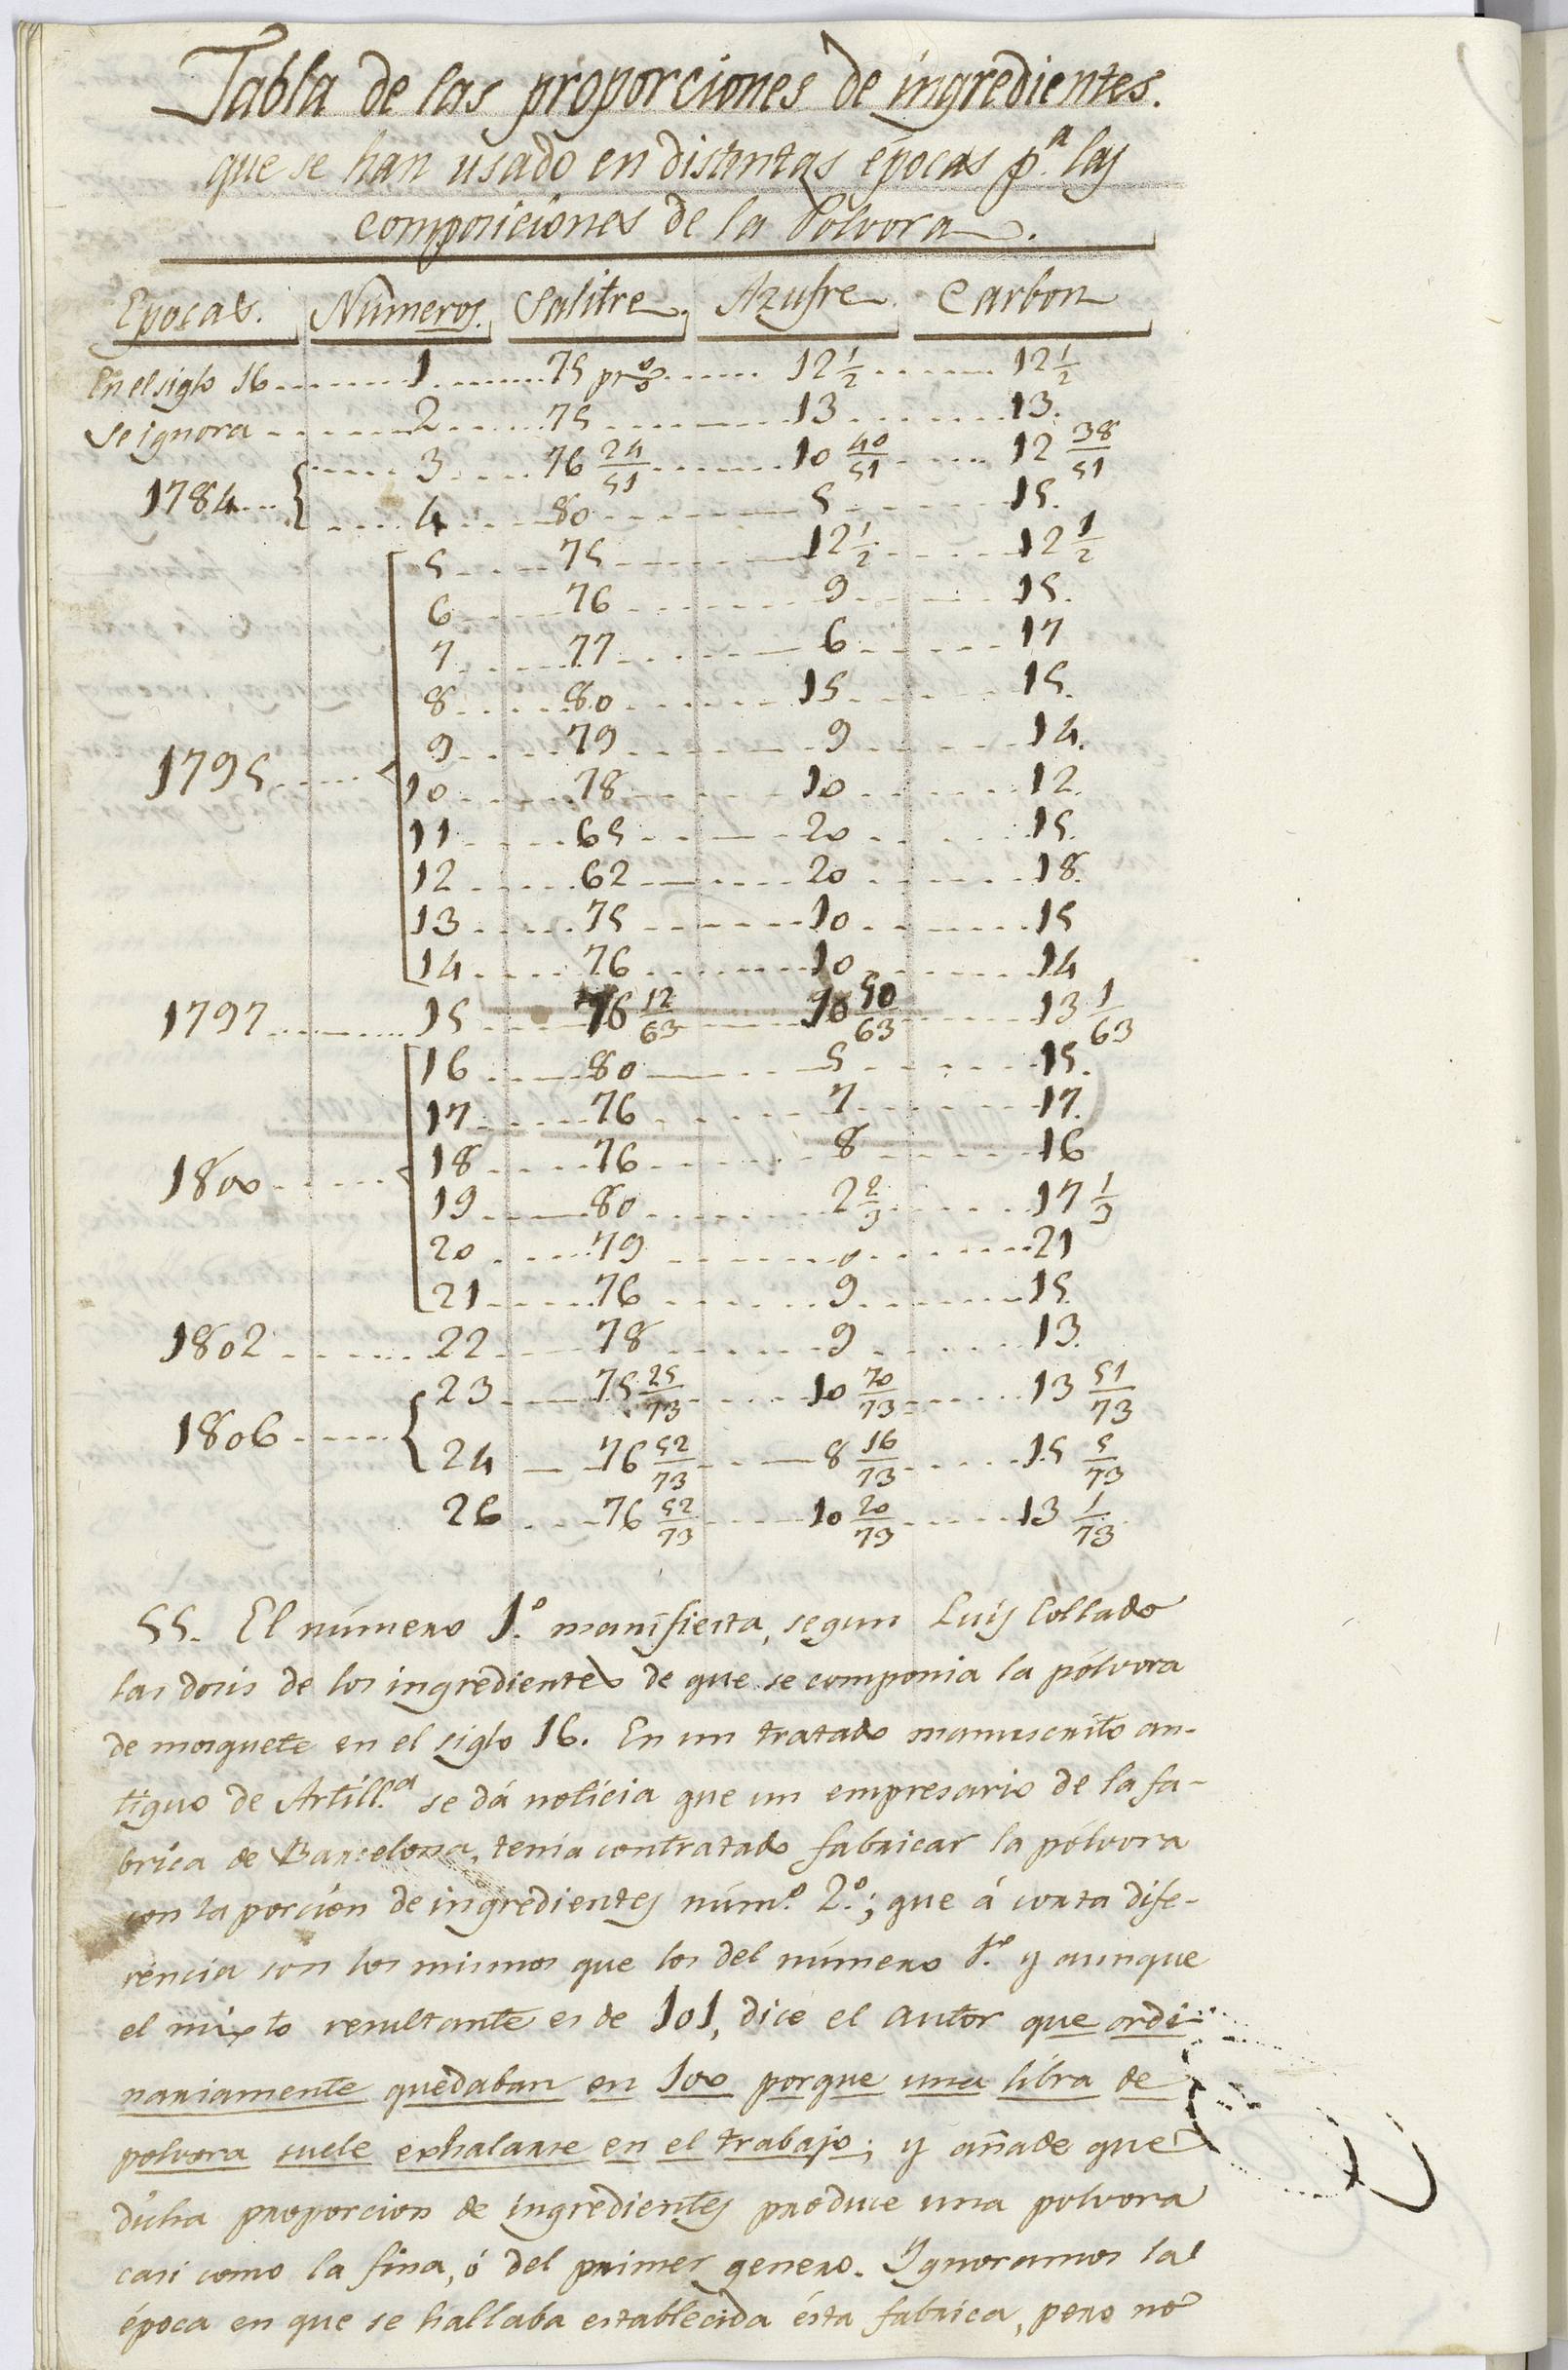 Tabla de las proporciones de ingredientes.
que se han usado en distintas épocas p.ª las
composiciones de la Pólvora.
Epocas. Números. Salitre. Azufre. Carbon
En el siglo 16 1 75 pr % 12 1/2 12 1/2
Se ignora 2 75 13 13.
1784 { 3 76 24/51 10 40/51 12 38/51
4 80 5 15.
1795 5 75 12 1/2 12 1/2
6 76 9 15.
7 77 6 17
8 80 15 15.
9 79 9 14.
10 78 10 12.
11 65 20 15.
12 62 20 18.
13 75 10 15
14 76 10 14
1797 15 76 12/63 10 50/63 13 1/63
1800 16 80 5 15.
17 76 7 17.
18 76 8 16
19 80 2 2/3 17 1/3
20 79 0 21
21 76 9 15.
1802 22 78 9 13.
1806 { 23 75 25/73 10 70/73 13 51/73
24 76 52/73 8 16/73 15 5/73
26 76 52/73 10 20/73 13 1/73
55. El número 1.º manifiesta, segun Luis Collado
las dosis de los ingredientes de que se componia la pólvora
de mosquete en el siglo 16. En un tratado manuscrito an-
tiguo de Artill.ª se dá noticia que un empresario de la fa-
brica de Barcelona, tenia contratado fabricar la pólvora
con la porción de ingredientes núm.º 2.º; que á corta dife-
rencia son los mismos que los del número 1.º y aunque
el mixto resultante es de 101, dice el autor que ordi-
nariamente quedaban en 100 porque una libra de
polvora suele exhalarse en el trabajo; y añade que
dicha proporcion de ingredientes produce una polvora
casi como la fina, ó del primer genero. Ygnoramos la
época en que se hallaba establecida ésta fabrica, pero no